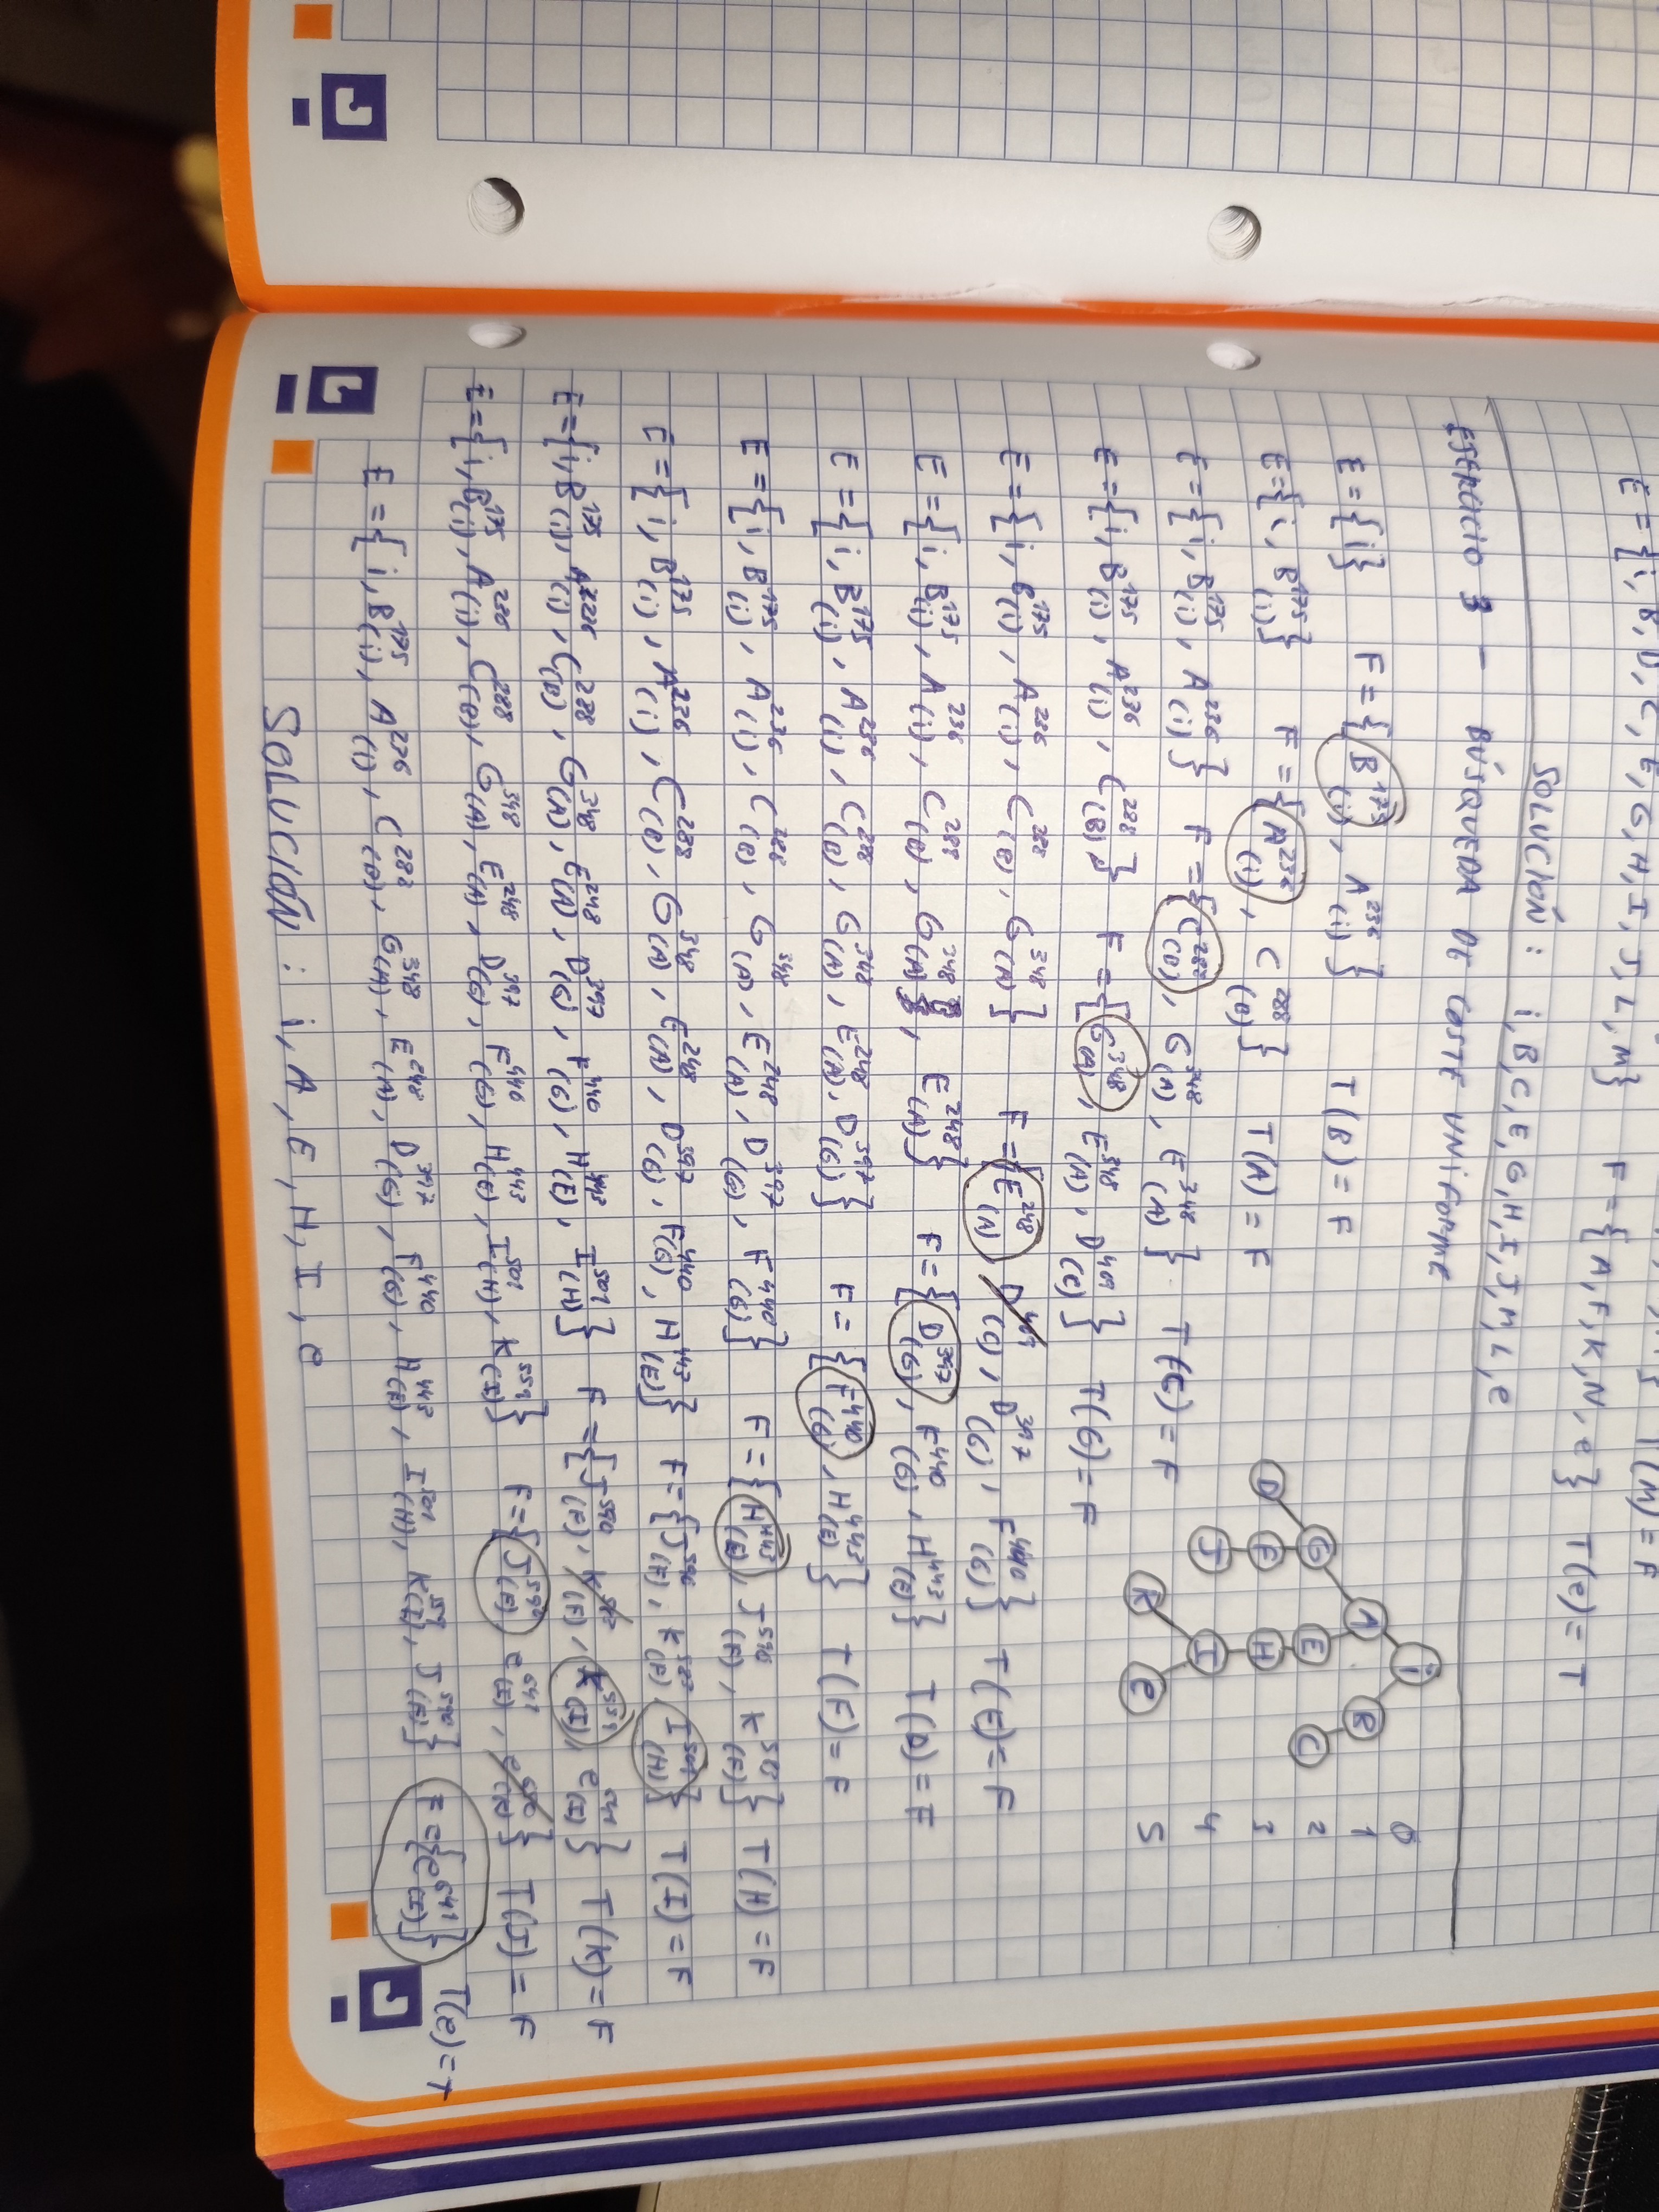 E = {i, B, D, C, E, G, H, I, J, L, M} F = {A, F, K, N, e} T(e) = T
T(M) = F
SOLUCIÓN : i, B, C, E, G, H, I, J, M, L, e
BÚSQUEDA DE COSTE UNIFORME
E = {i} F = {B175(i), A236(i)} T(B) = F
E = {i, B175(i)} F = {A236(i), C288(B)} T(A) = F
E = {i, B175(i), A236(i)} F = {C288(B), G348(A), E348(A)} T(C) = F
E = {i, B175(i), A236(i), C288(B)} F = {G348(A), E348(A), D409(C)} T(G) = F
E = {i, B175(i), A236(i), C288(B), G348(A)} F = {E248(A), D409(C), D397(G), F440(G)} T(E) = F
E = {i, B175(i), A236(i), C288(B), G348(A), E248(A)} F = {D397(G), F440(G), H443(E)} T(D) = F
E = {i, B175(i), A236(i), C288(B), G348(A), E248(A), D397(G)} F = {F440(G), H443(E)} T(F) = F
E = {i, B175(i), A236(i), C288(B), G348(A), E248(A), D397(G), F440(G)} F = {H443(E), J590(F), K587(F)} T(H) = F
E = {i, B175(i), A236(i), C288(B), G348(A), E248(A), D397(G), F440(G), H443(E)} F = {J590(F), K587(F), I501(H)} T(I) = F
E = {i, B175(i), A236(i), C288(B), G348(A), E248(A), D397(G), F440(G), H443(E), I501(H)} F = {J590(F), K587(F), K559(I), e641(I)} T(K) = F
E = {i, B175(i), A236(i), C288(B), G348(A), E248(A), D397(G), F440(G), H443(E), I501(H), K559(I)} F = {J590(F), e641(I)} T(J) = F
E = {i, B175(i), A236(i), C288(B), G348(A), E248(A), D397(G), F440(G), H443(E), I501(H), K559(I), J590(F)} F = {e641(I)} T(e) = T
SOLUCIÓN : i, A, E, H, I, e
i 0
A B 1
G E C 2
D F H 3
J I 4
K e 5